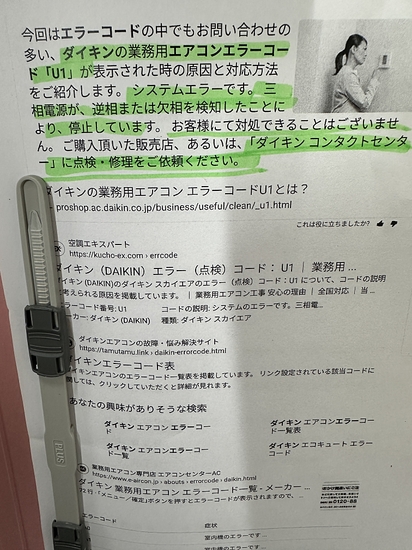 今回はエラーコードの中でもお問い合わせの
多い、ダイキンの業務用エアコンエラーコー
ド「U1」が表示された時の原因と対応方法
をご紹介します。 システムエラーです。三
相電源が、逆相または欠相を検知したことに
より、停止しています。 お客様にて対処できることはございませ
ん。 ご購入頂いた販売店、あるいは、「ダイキン コンタクトセンタ
ー」に点検・修理をご依頼ください。
ダイキンの業務用エアコン エラーコードU1とは？
proshop.ac.daikin.co.jp/business/useful/clean/_u1.html
これは役に立ちましたか？
空調エキスパート
https://kucho-ex.com › errcode
ダイキン（DAIKIN）エラー（点検）コード：U1 ｜ 業務用 ...
ダイキン(DAIKIN)のダイキン スカイエアのエラー（点検）コード：U1 について、コードの説明
考えられる原因を掲載しています。 ｜ 業務用エアコン工事 安心の理由 ｜ 全国対応 ｜ 当 ...
ラーコード番号: U1 コードの説明: システムのエラーです。三相電...
ーカー: ダイキン (DAIKIN) 種類: ダイキン スカイエア
ダイキンエアコンの故障・悩み解決サイト
https://tamutamu.link › daikin-errorcode.html
ダイキンエラーコード表
ダイキンエアコンのエラーコード一覧表を掲載しています。 リンク設定されている該当コードに
関しては、クリックしていただくと詳細が見れます。
あなたの興味がありそうな検索
ダイキン エアコンエラーコー
ド
ダイキン エアコンエラーコー
ド一覧表
ダイキン エラーコード一
覧
ダイキン エコキュート エラー
コード
業務用エアコン専門店 エアコンセンターAC
https://www.e-aircon.jp › abouts › errorcode › daikin.html
ダイキン 業務用エアコン エラーコード一覧 - メーカー ...
行.「メニュー／確定」ボタンを押すとエラーコードが表示されますので、 ...
0120-83
エラーコード 症状
室内機のエラーです...
室内機のエラーです...
PLUS